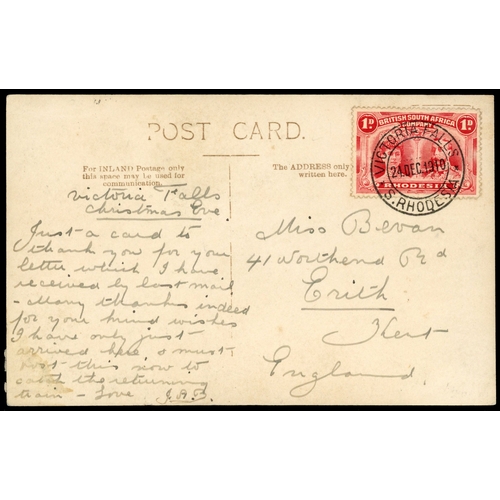 POST CARD.
For INLAND Postage only
this space may be used for
communication.
The ADDRESS only
written here.
1D BRITISH SOUTH AFRICA 1D
COMPANY
RHODESIA
VICTORIA FALLS
24 DEC 1910
S. RHODESIA
Victoria Falls
Christmas Eve
Just a card to
thank you for your
letter which I have
received by last mail
- Many thanks indeed
for your kind wishes
I have only just
arrived here & must
post this now to
catch the returning
train - Love J.A.B.
Miss Bevan
41 Northend Rd
Erith
Kent
England